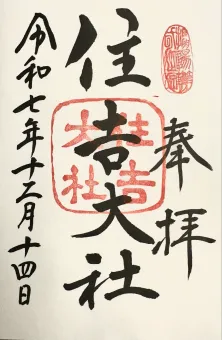 奉拝
住吉大社
住吉大社
令和七年十二月十四日